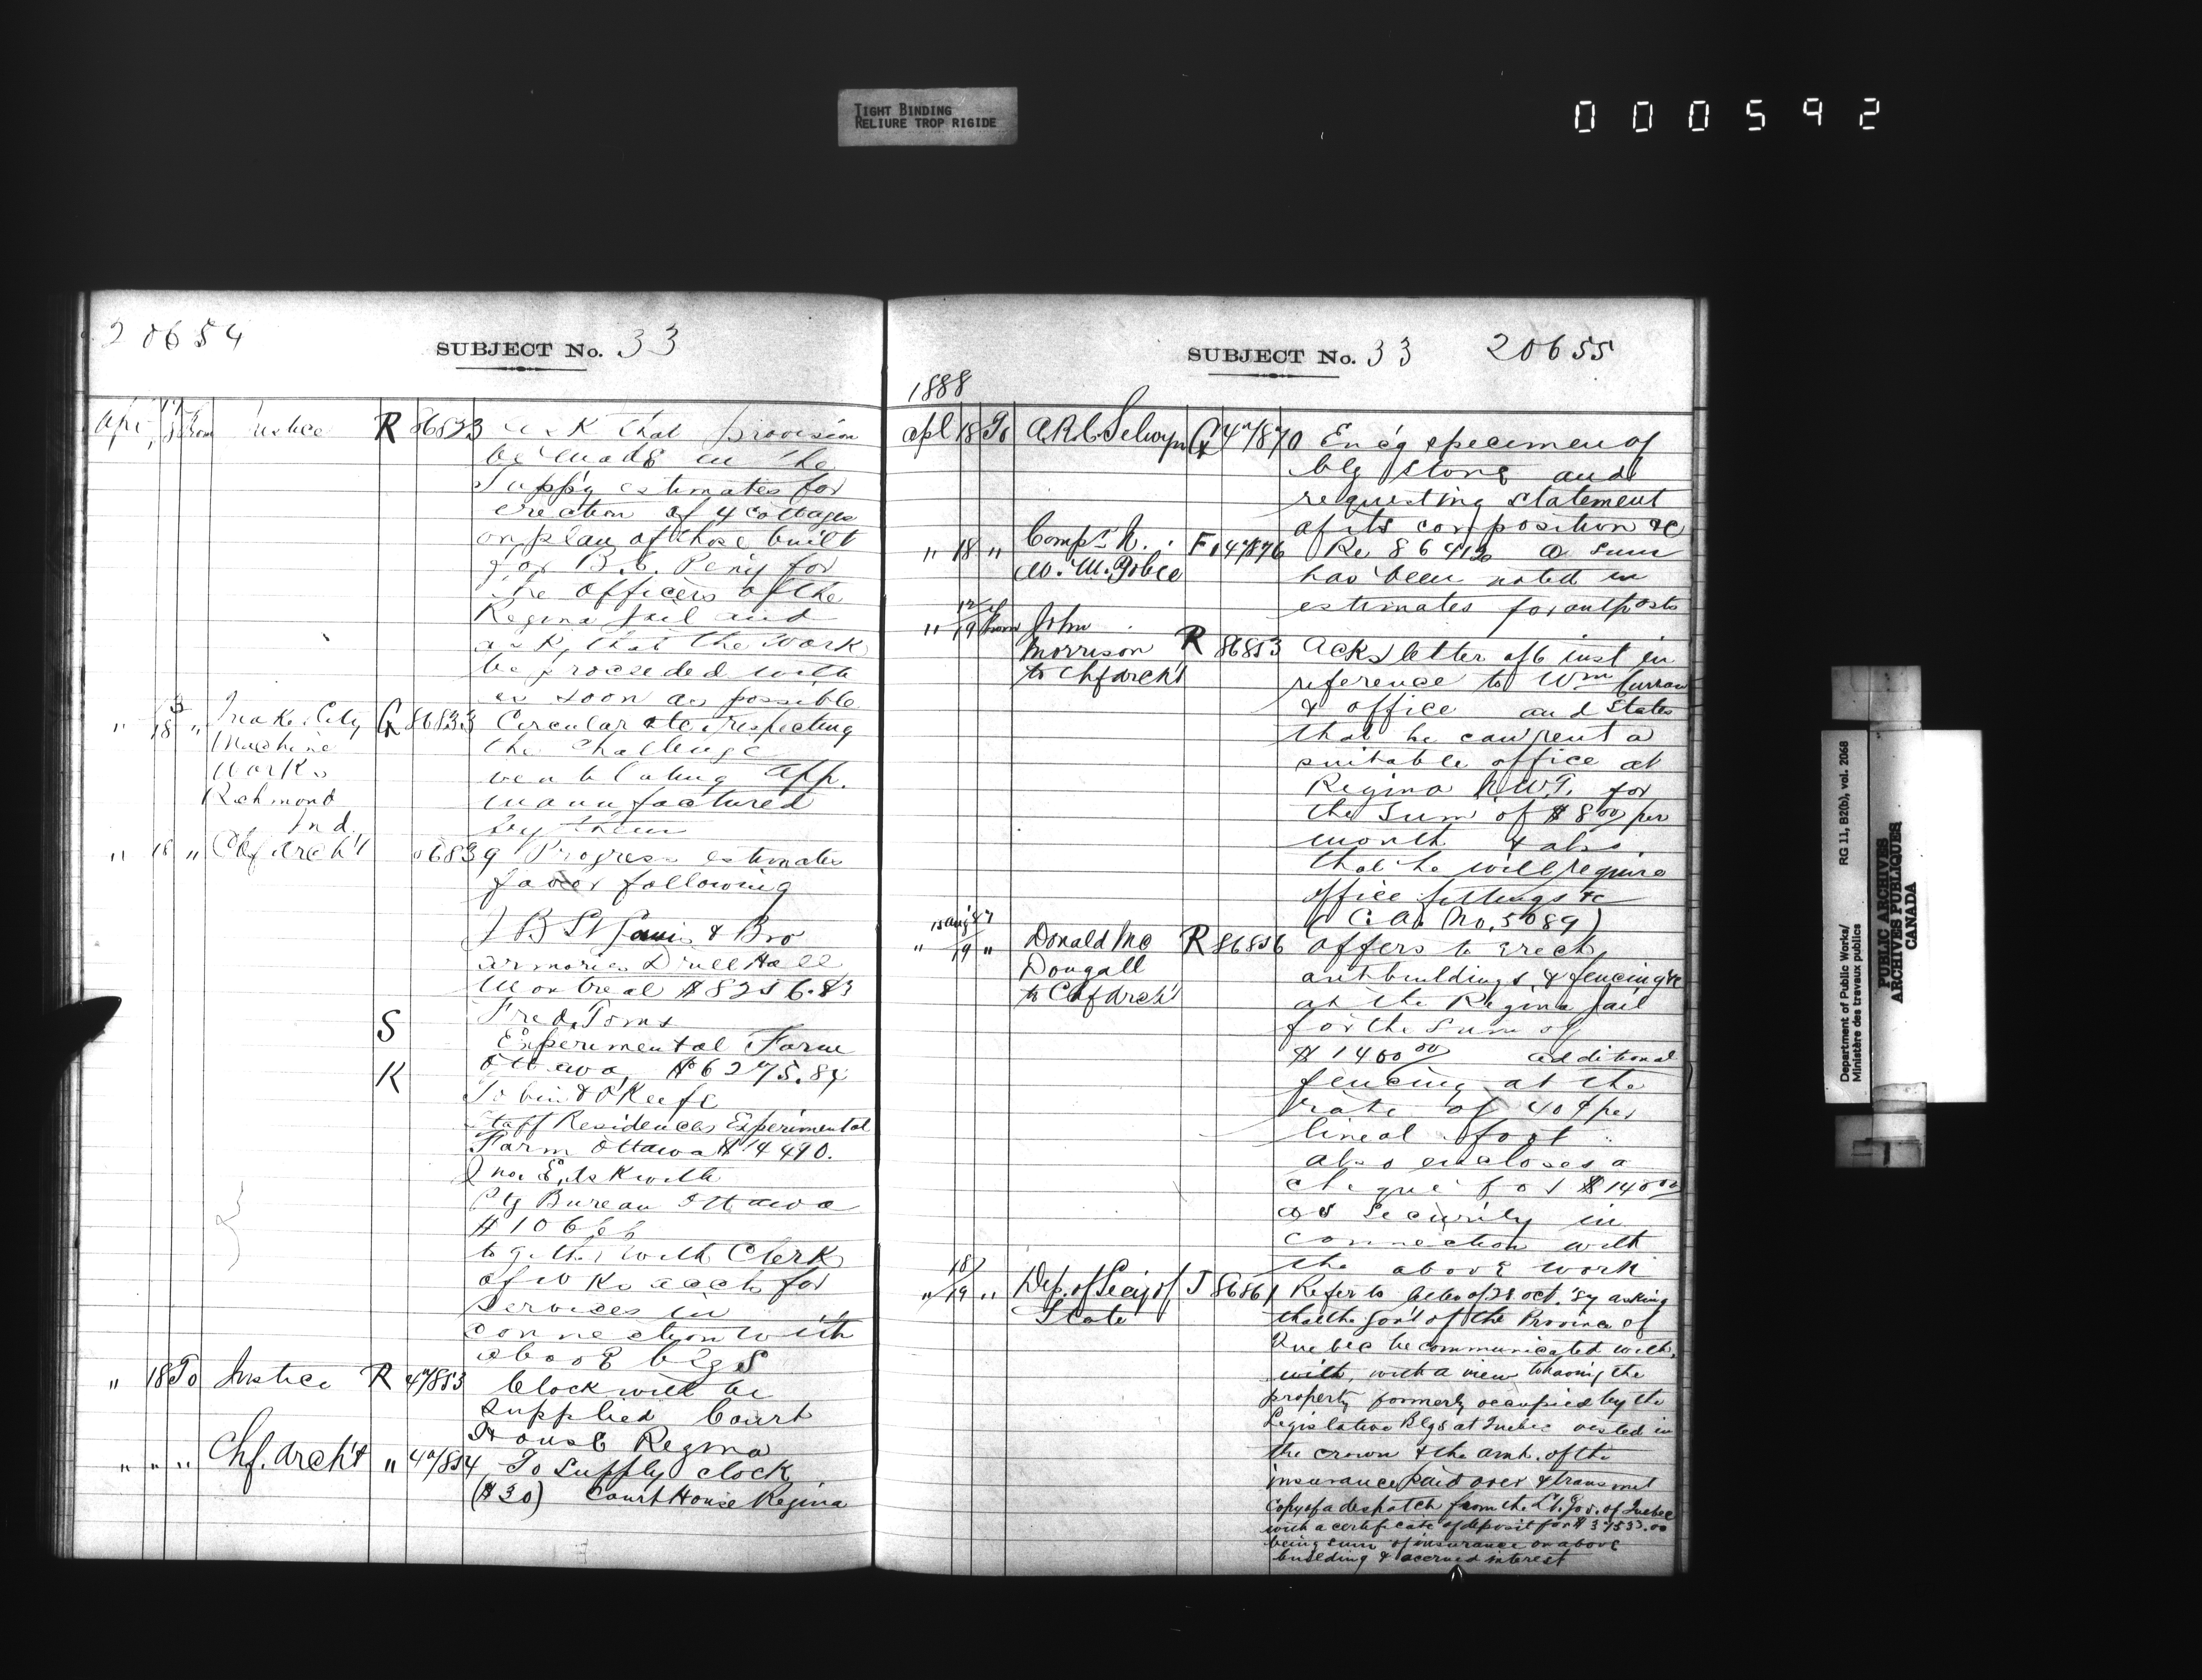 TIGHT BINDING
RELIURE TROP RIGIDE
000592
20654
SUBJECT No. 33
Apl 17 18 From Justice R 86823 ask that provision
be made in the
Supp'y estimates for
erection of 4 cottages
on plan of those built
for B.C. Peny for
the officers of the
Regina Jail and
ask that the work
be proceeded with
as soon as possible
" 13 18 " Snake City G 86833 Circular etc respecting
Machine the Challenge
Works ventilating app.
Richmond manufactured
Ind. by them
" 18 " Chf Arch't 86839 Progress estimates
favor following
J B St Louis & Bro
armories Drill Hall
Montreal $8256.83
S Fred Toms
Experimental Farm
K Ottawa, $6275.87
Tobin & O'Keefe
Staff Residences Experimental
Farm Ottawa $4490.
Jno. E. Askwith
Ptg Bureau Ottawa
$10666
together with Clerk
of Wks acct for
services in
connection with
above blgs
" 18 To Justice R 47853 Clock will be
supplied Court
House Regina
" " " Chf. Arch't " 47854 To supply clock
($30) Court House Regina
SUBJECT No. 33 20655
1888
Apl 18 To A.R.C. Selwyn G 47870 Enc'g specimen of
blg stone and
requesting statement
of its composition &c
" 18 " Comp'r N. F 47876 Re 86412 a sum
W. M. Police has been noted in
estimates for outposts
" 17/19 from John
Morrison R 86853 Acks letter of 6 inst in
to Chf Arch't reference to Wm Curran
& office and states
that he can rent a
suitable office at
Regina N.W.T. for
the sum of $8.00 per
month & also
that he will require
office fittings &c
(C. A. No. 5089)
15 Aug 87
" 19 " Donald Mc R 86856 Offers to erect
Dougall outbuildings, & fencing &c
to Chf Arch't at the Regina Jail
for the sum of
$1400.00 additional
fencing at the
rate of 40¢ per
lineal foot
also encloses a
cheque for $140.00
as security in
connection with
the above work
" 18/19 " Dep. of Sec'y of J 86861 Refer to letter of 28 Oct. '87 asking
State that the Gov't of the Province of
Quebec be communicated with,
with, with a view to having the
property formerly occupied by the
Legislative Blgs at Quebec vested in
the crown & the amt. of the
insurance paid over & transmit
Copy of a despatch from the Lt. Gov. of Quebec
with a certificate of deposit for $37533.00
being sum of insurance on above
building & accrued interest
Department of Public Works/ RG 11, B2(b), vol. 2068
Ministère des travaux publics
PUBLIC ARCHIVES
ARCHIVES PUBLIQUES
CANADA